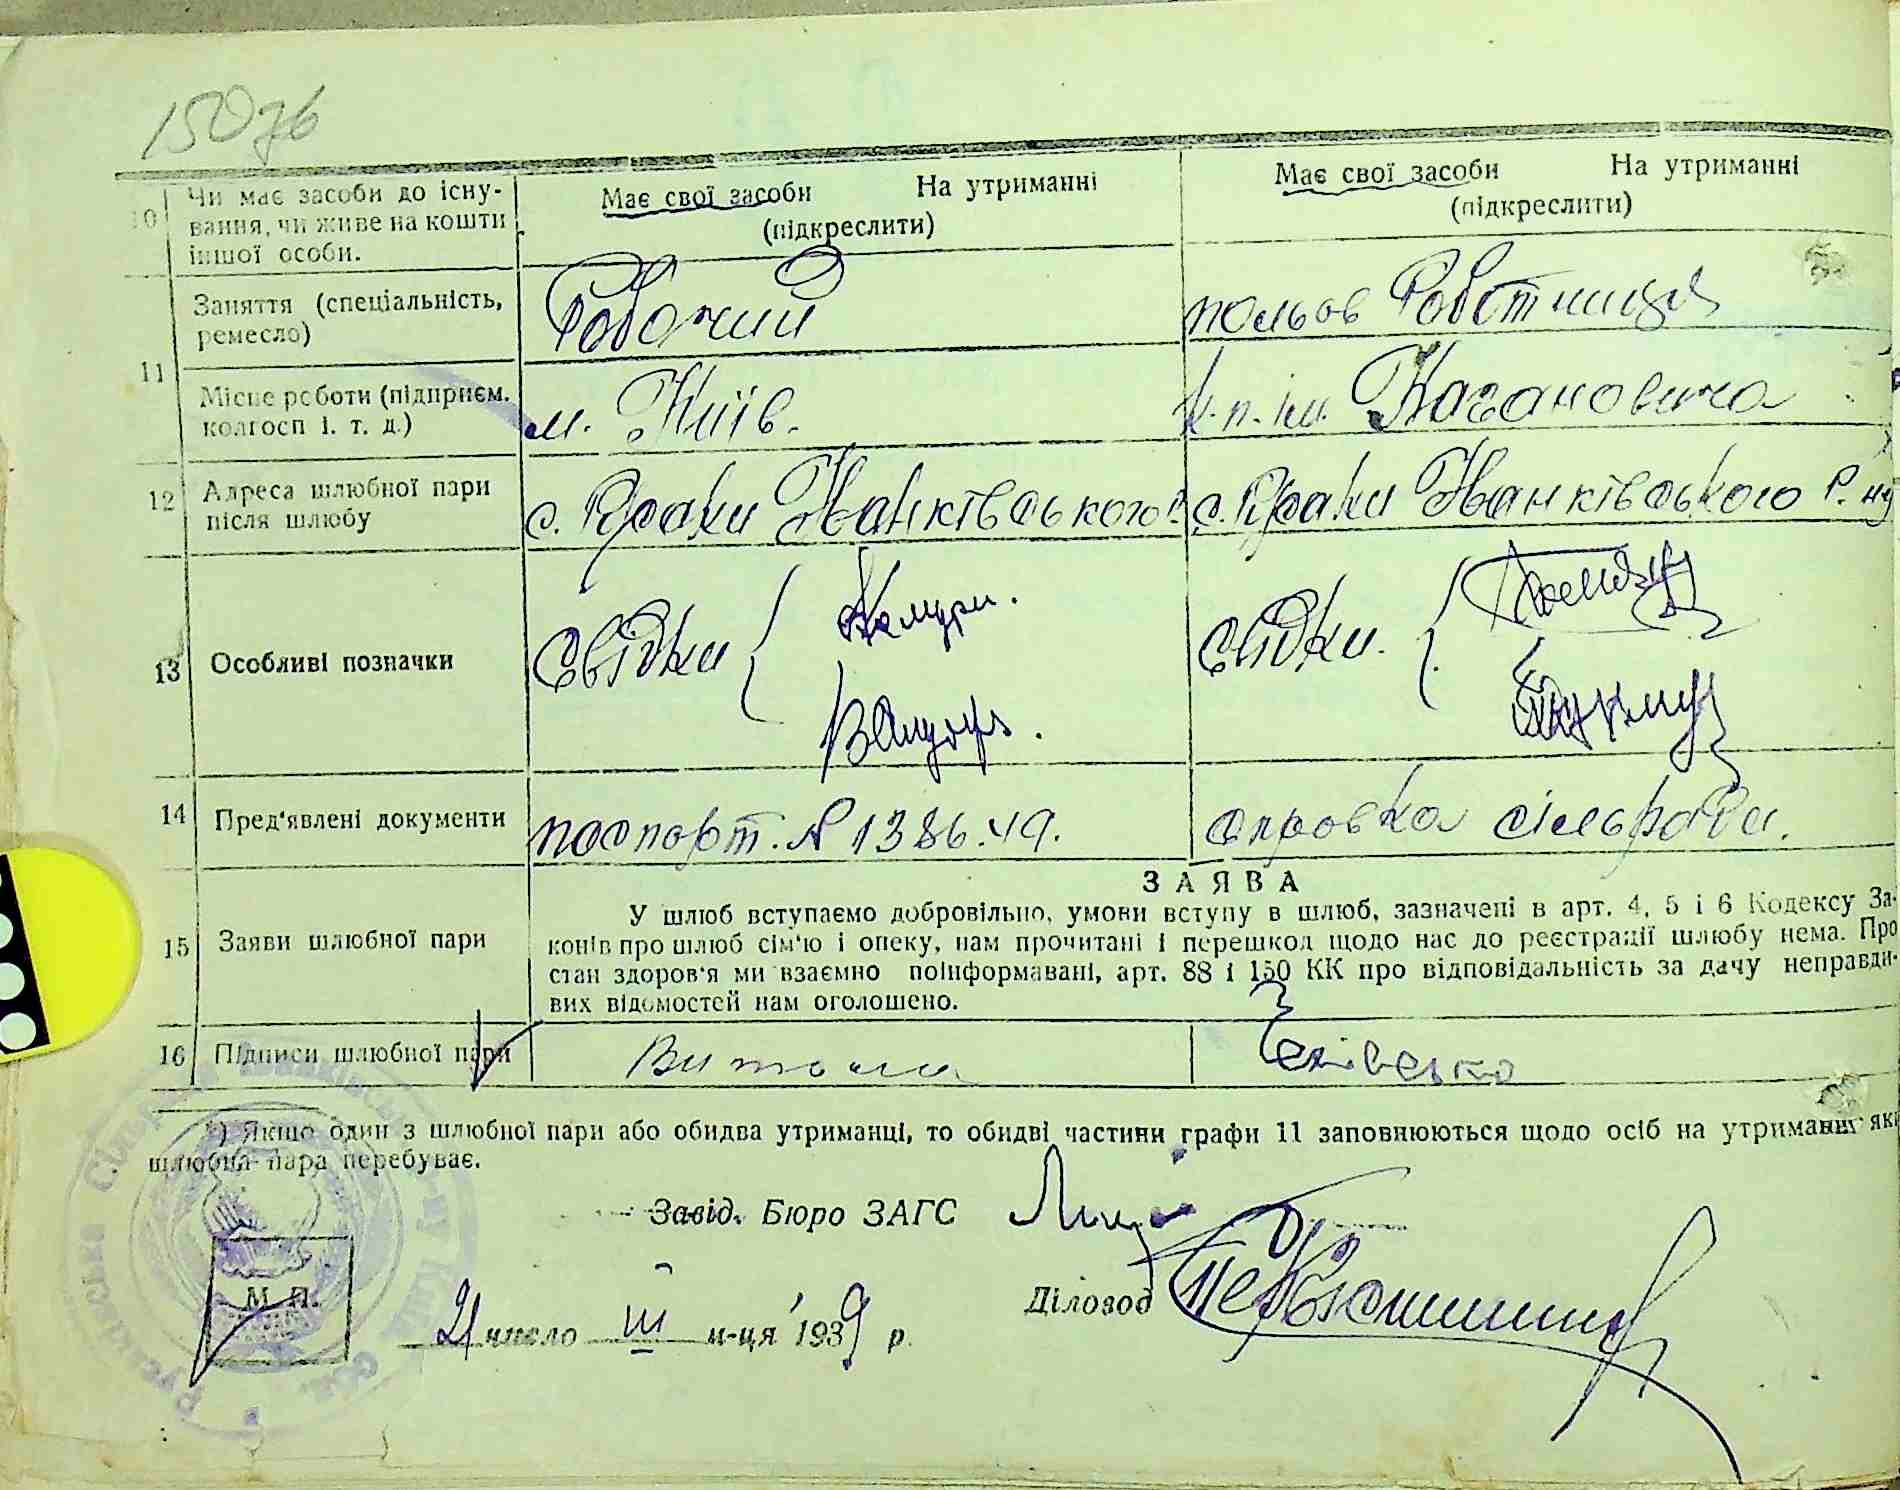 150 зв
10 Чи має засоби до існу-
вання, чи живе на кошти
іншої особи.
Має свої засоби На утриманні
(підкреслити)
Має свої засоби На утриманні
(підкреслити)
11
Заняття (спеціальність,
ремесло)
Робочий
польов Роботниця
Місце роботи (підприєм.
колгосп і. т. д.)
м. Київ.
к-п. ім. Кагановича
12 Адреса шлюбної пари
після шлюбу
с. Русаки Іванківського
с. Русаки Іванківського р.ну
13 Особливі позначки
Свідки
Свідки.
14 Пред'явлені документи
паспорт. № 1386.49.
справка сільради.
ЗАЯВА
15 Заяви шлюбної пари
У шлюб вступаємо добровільно, умови вступу в шлюб, зазначені в арт. 4, 5 і 6 Кодексу За-
конів про шлюб сім'ю і опеку, нам прочитані і перешкод щодо нас до реєстрації шлюбу нема. Про
стан здоров'я ми взаємно поінформавані, арт. 88 і 150 КК про відповідальність за дачу неправди-
вих відомостей нам оголошено.
16 Підписи шлюбної пари
*) Якщо один з шлюбної пари або обидва утриманці, то обидві частини графи 11 заповнюються щодо осіб на утриманні які
шлюбна пара перебуває.
Завід. Бюро ЗАГС
М. П.
Діловод
21 число III м-ця 1939 р.